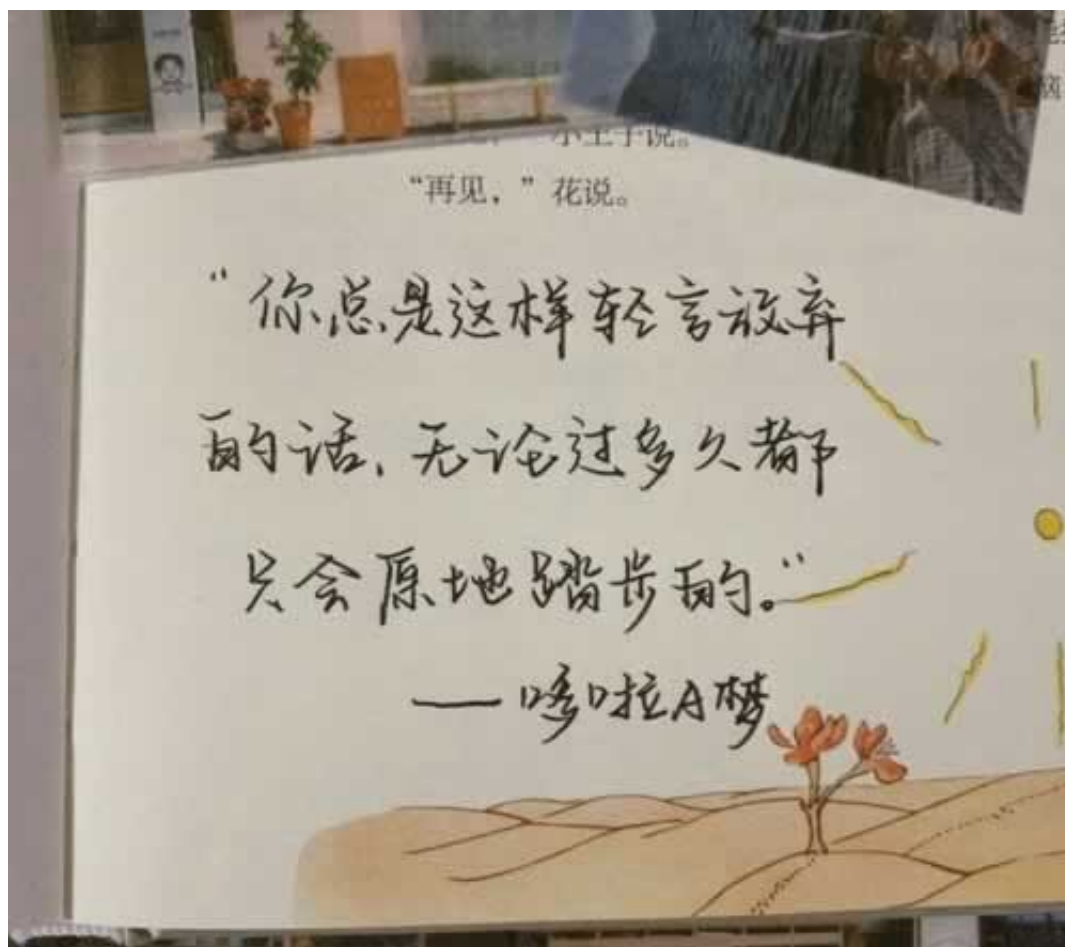 小王子说。
“再见，”花说。
“你总是这样轻言放弃
的话，无论过多久都
只会原地踏步的。”
——哆啦A梦